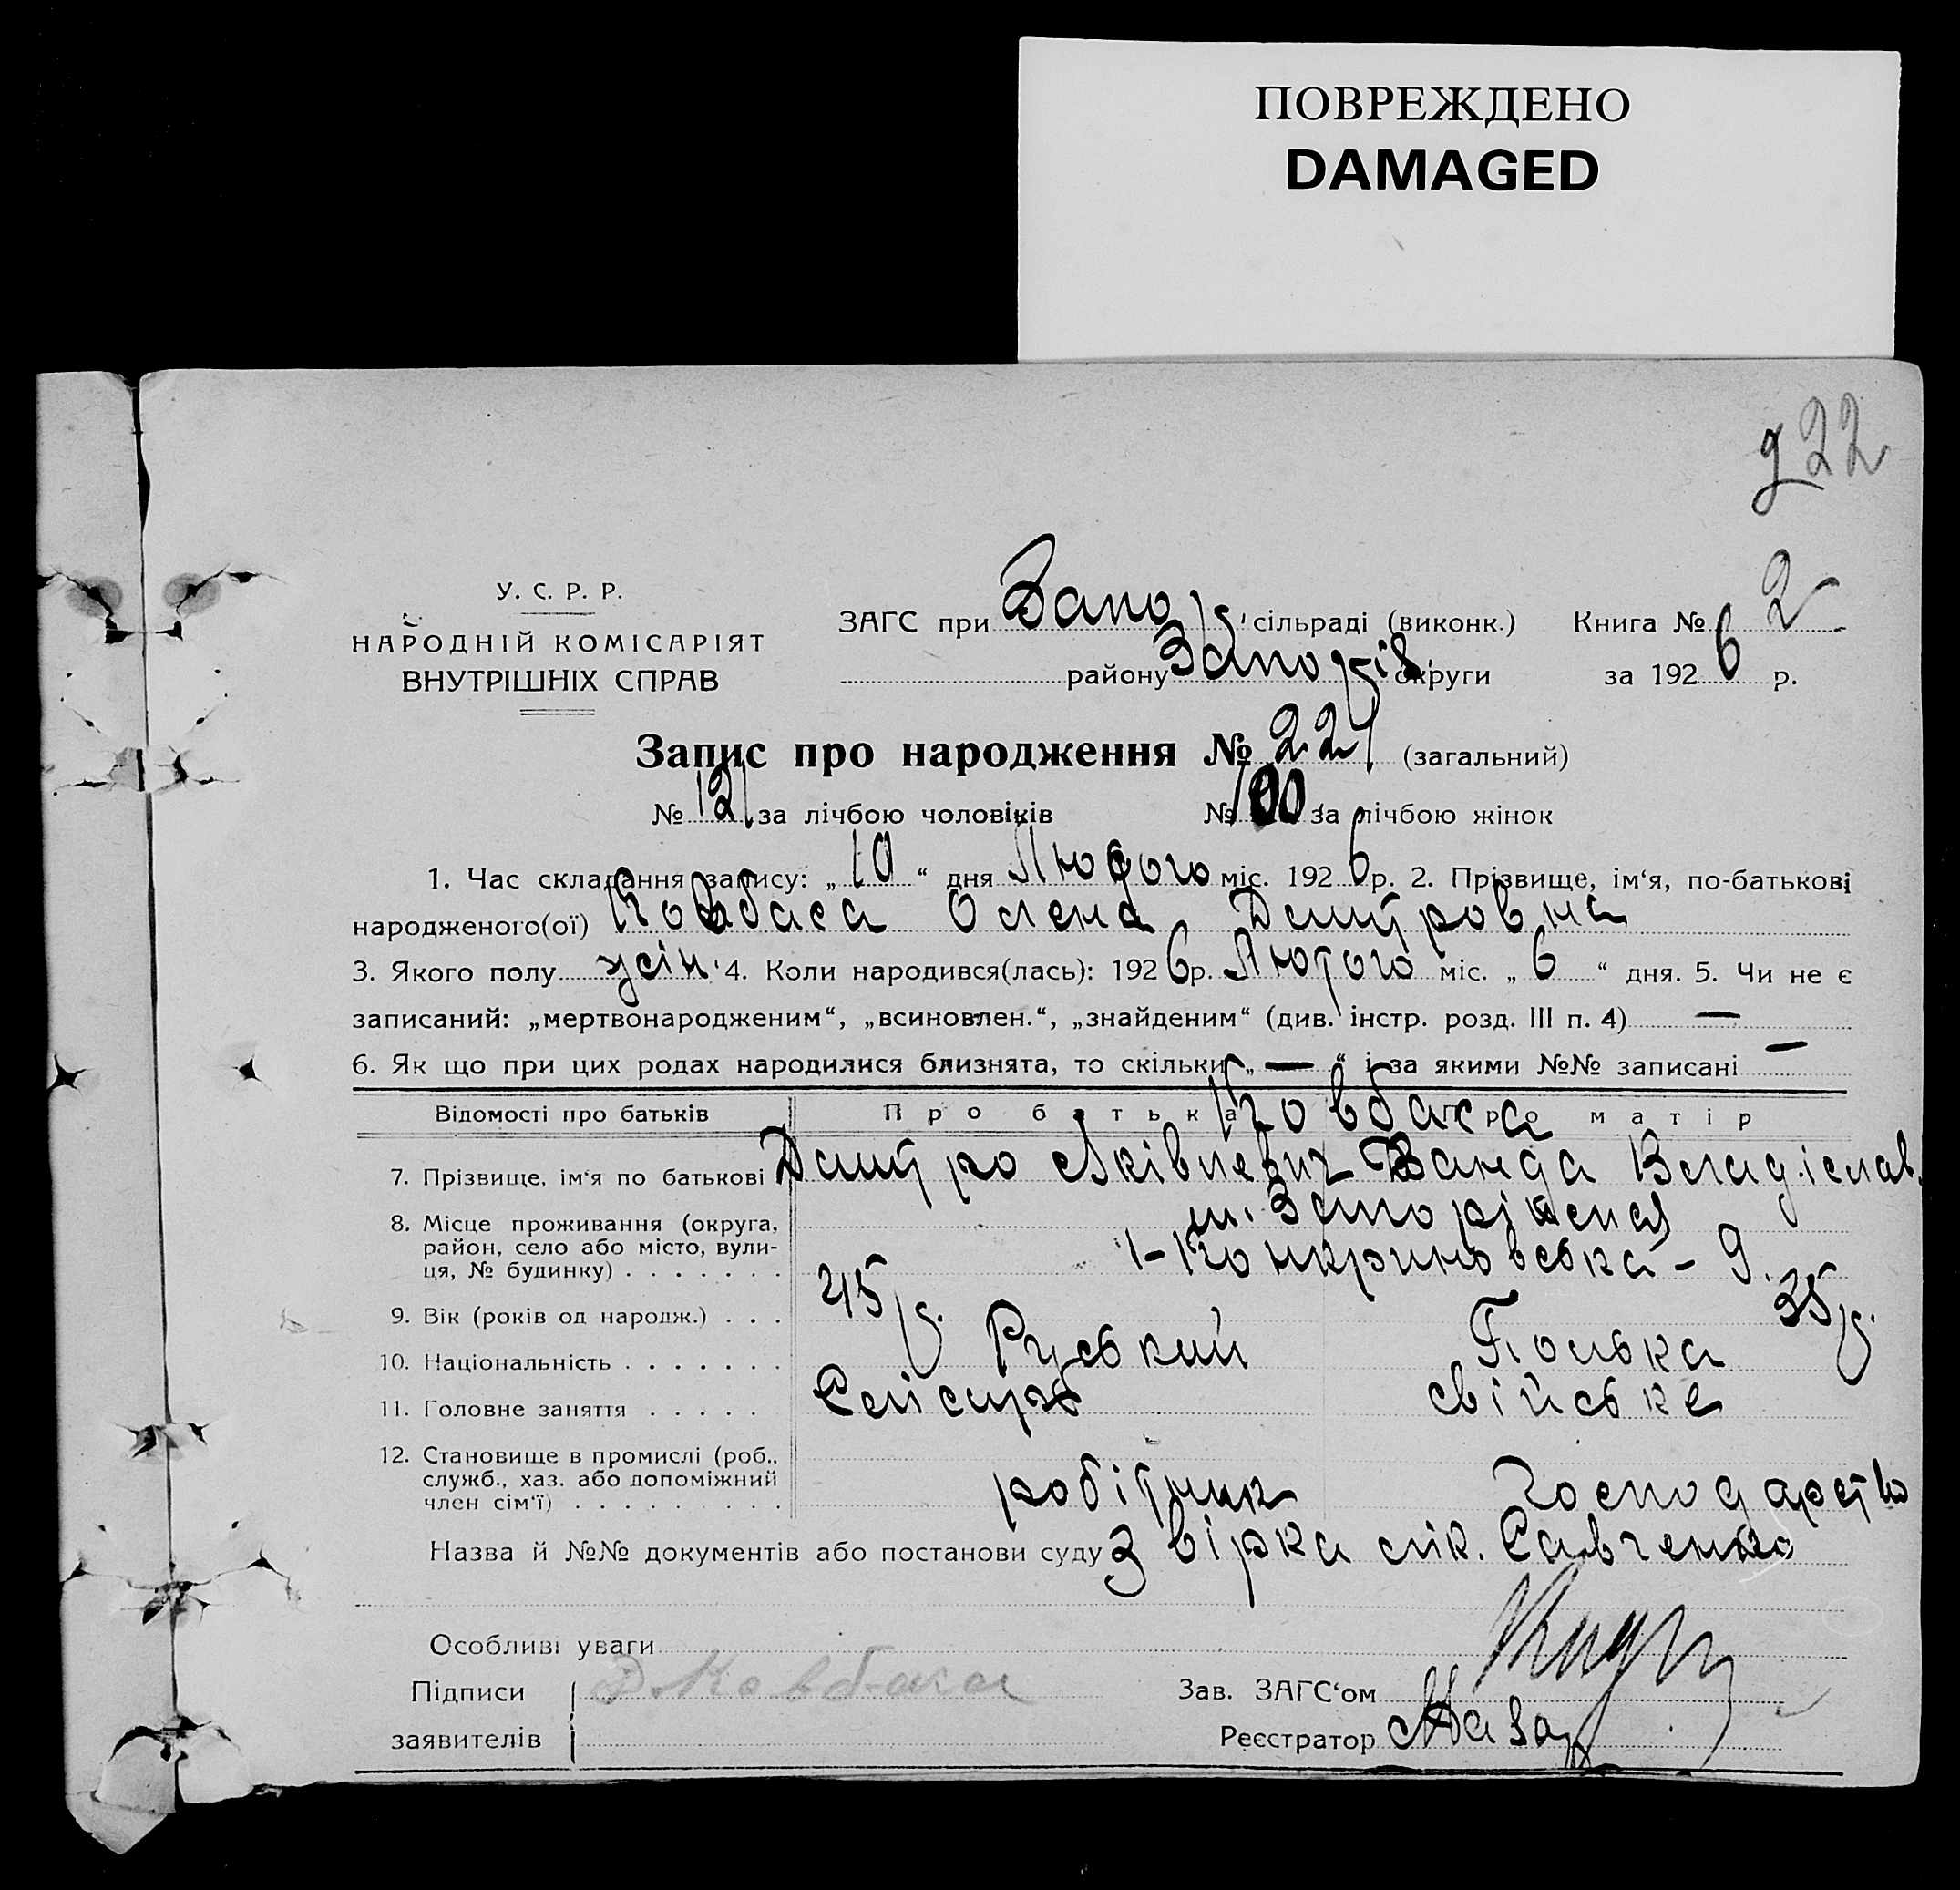 ПОВРЕЖДЕНО
DAMAGED
222
У. С. Р. Р.
НАРОДНІЙ КОМІСАРІЯТ
ВНУТРІШНІХ СПРАВ
ЗАГС при Запор. сільраді (виконк.) Книга № 2
району Запоріз. округи за 1926 р.
Запис про народження № 221 (загальний)
№ 121 за лічбою чоловіків № 100 за лічбою жінок
1. Час складання запису: „ 10 “ дня Лютого міс. 1926 р. 2. Прізвище, ім‘я, по-батькові
народженого(ої) Ковбаса Олена Дмитровна
3. Якого полу жін. 4. Коли народився(лась): 1926 р. Лютого міс. „ 6 “ дня. 5. Чи не є
записаний: „мертвонародженим“, „всиновлен.“, „знайденим“ (див. інстр. розд. III п. 4) —
6. Як що при цих родах народилися близнята, то скільки „ — “ і за якими №№ записані —
Відомості про батьків Про батька Ковбаса Про матір
7. Прізвище, ім‘я по батькові Дмитро Яківлевич Ванда Владіслав.
8. Місце проживання (округа, район, село або місто, вулиця, № будинку) м. Запоріжжя
9.
9. Вік (років од народж.) 45 р. 35 р.
10. Національність Руський Полька
11. Головне заняття свійське
12. Становище в промислі (роб., служб., хаз. або допоміжний член сім‘ї) робітник господарство
Назва й №№ документів або постанови суду Звірка лік. Савченко
Особливі уваги
Підписи Ковбаса Зав. ЗАГС‘ом
заявителів Реєстратор